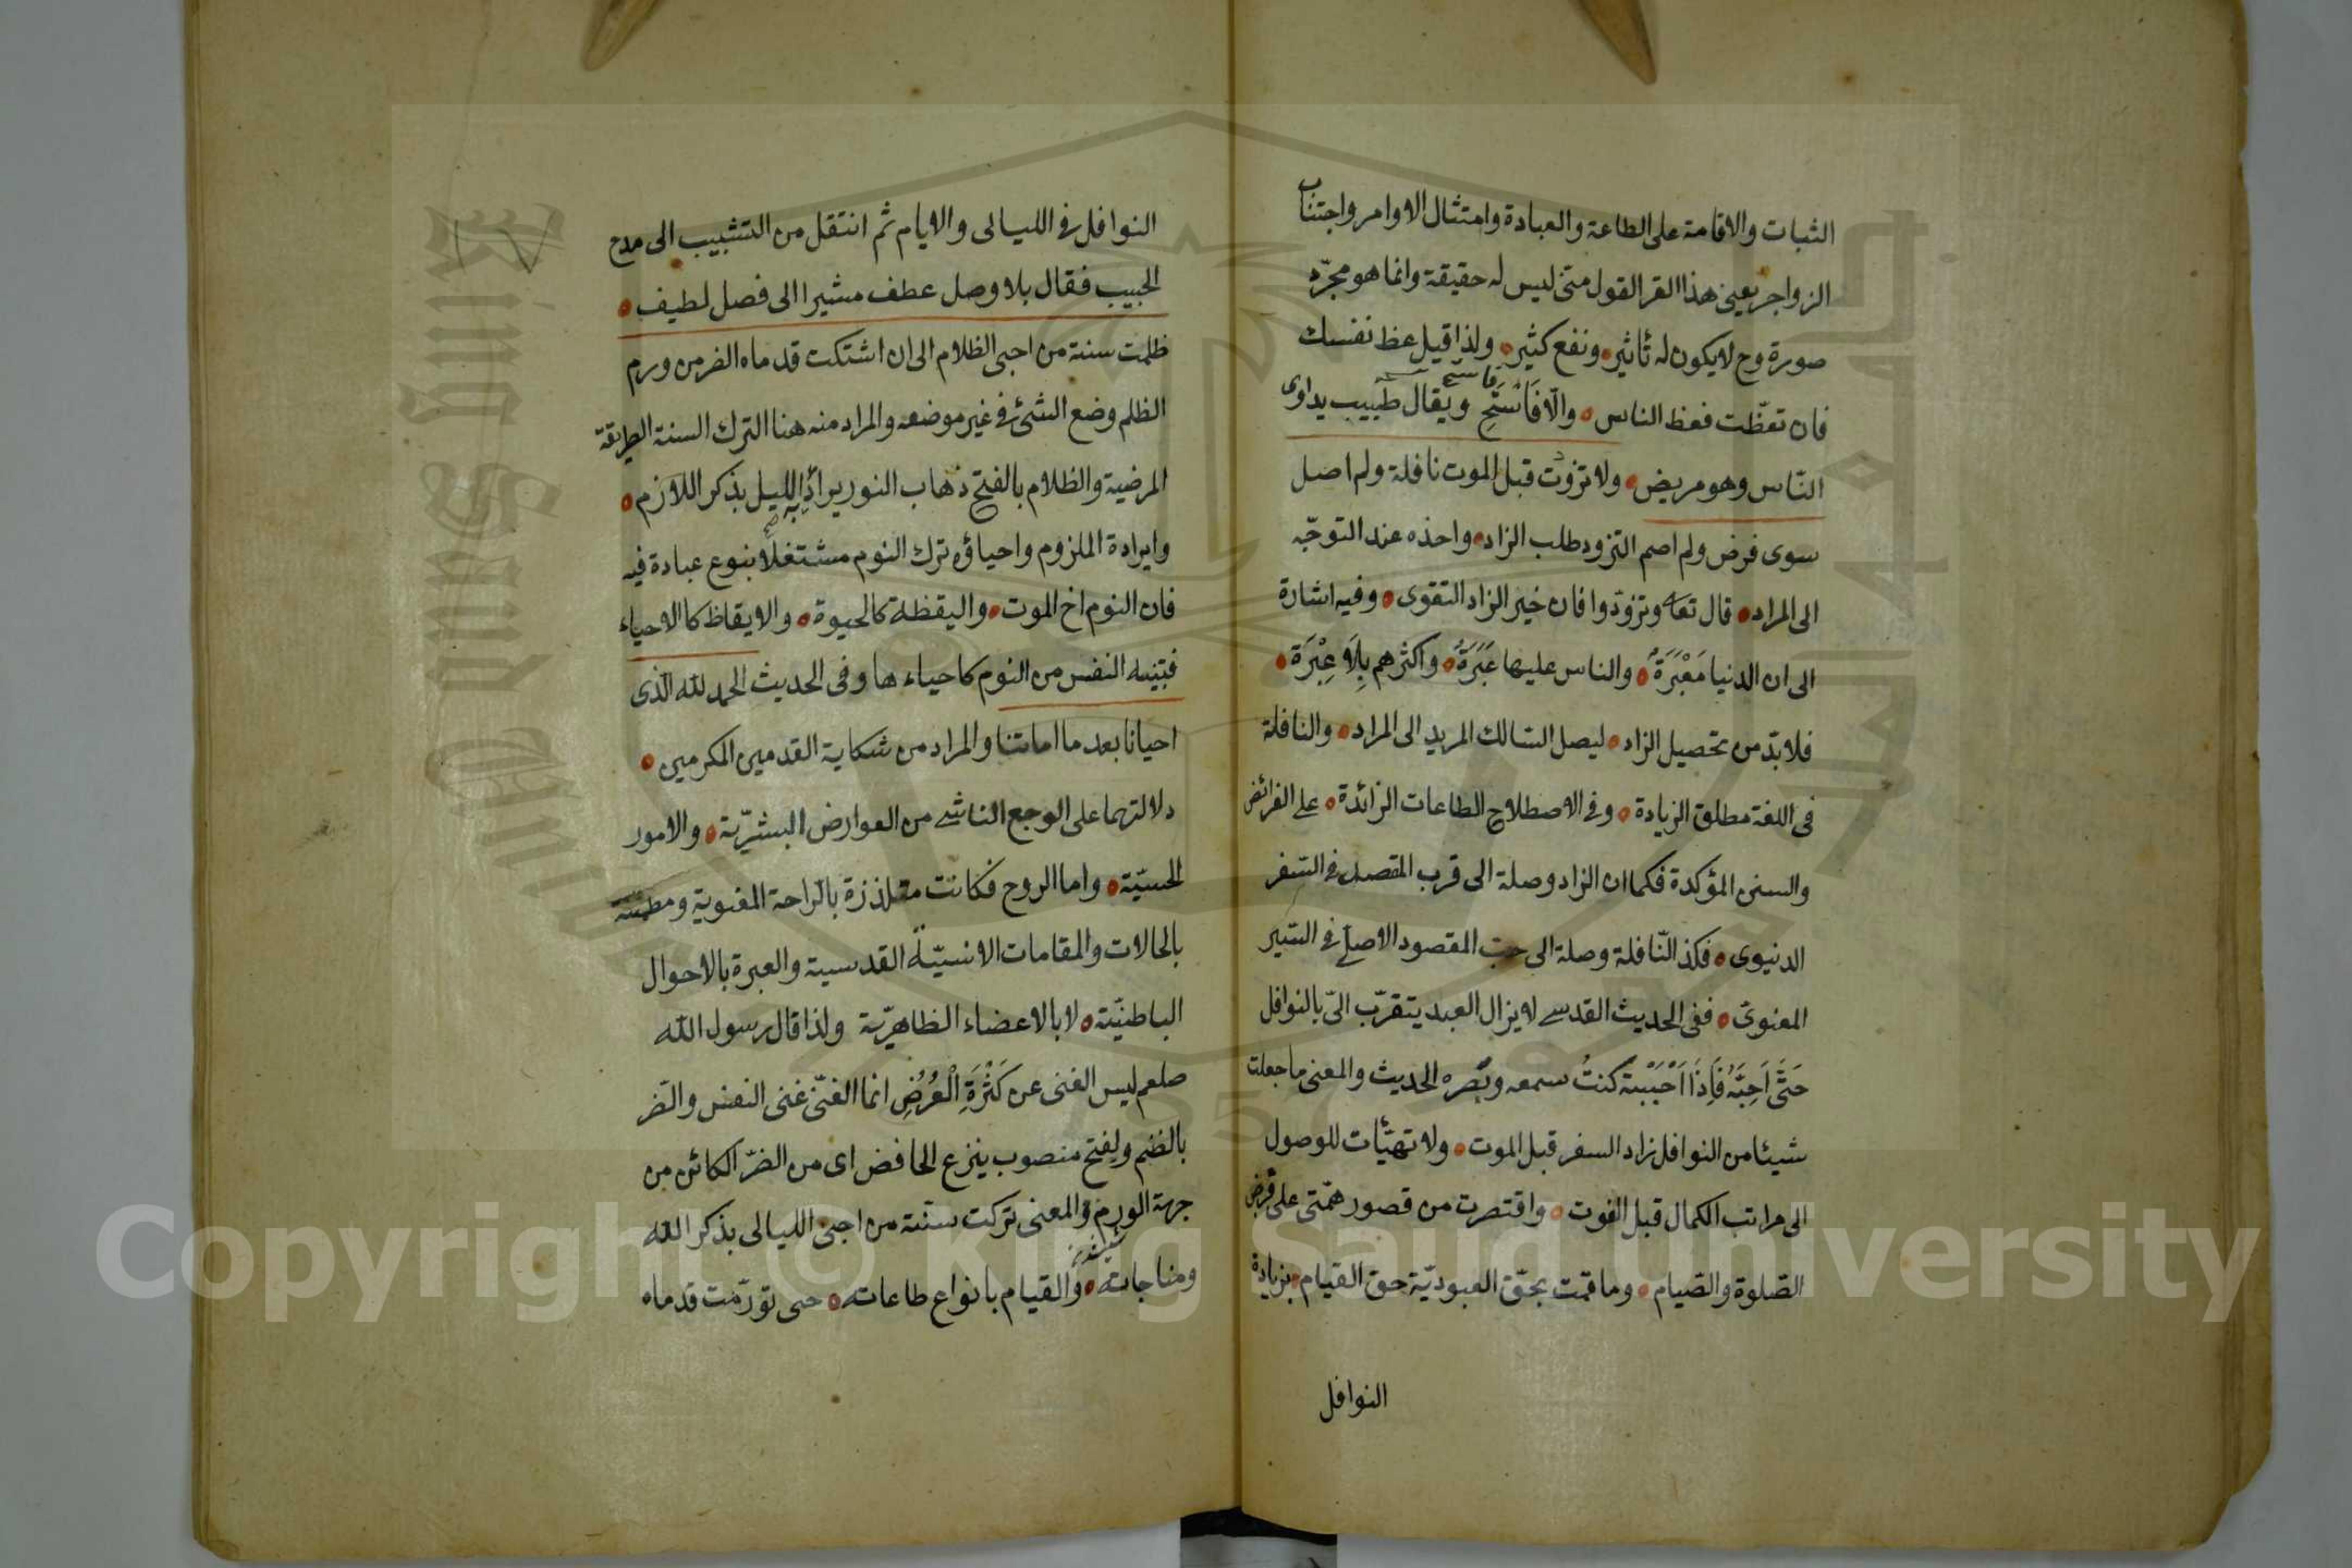 الثبات والاقامة على الطاعة والعبادة وامتثال الاوامر واجتناب
الزواجر يعنى هذا القر القول متى ليس له حقيقة وانما هو مجرّد
صورة وح لا يكون له تأثير ونفع كثير ولذا قيل عظ نفسك
فان تعظّت فعظ الناس والّا فَاسْتَحِ ويقال طبيب يداوى
النّاس وهو مريض ولا تزودت قبل الموت نافلة ولم اصل
سوى فرض ولم اصم التزود طلب الزاد واخذه عند التوجّه
الى المراد قال تعا وتزوّدوا فان خير الزاد التقوى وفيه اشارة
الى ان الدنيا مَعْبَرَةٌ والناس عليها عَبَرَةٌ واكثرهم بِلَا عِبْرَة
فلا بدّ من تحصيل الزاد ليصل السالك المريد الى المراد والنافلة
فى اللغة مطلق الزيادة وفى الاصطلاح الطاعات الزائدة على الفرائض
والسنن المؤكدة فكما ان الزاد وصلة الى قرب المقصد فى السفر
الدنيوى فكذا النّافلة وصلة الى حب المقصود الاصلى فى السّير
المعنوىّ ففى الحديث القدسى لا يزال العبد يتقرّب الىّ بالنوافل
حَتَّى اُحِبَّهُ فَاِذَا اَحْبَبْتهُ كنتُ سمعه وبصره الحديث والمعنى ما جعلت
شيئا من النوافل زاد السفر قبل الموت ولا تهيّأت للوصول
الى مراتب الكمال قبل الفوت واقتصرت من قصور همّتى على فرض
الصّلوة والصّيام وما قمت بحقّ العبوديّة حق القيام بزيادة
النوافل
النوافل فى الليالى والايام ثم انتقل من التشبيب الى مدح
الحبيب فقال بلا وصل عطف مشيرا الى فصل لطيف
ظلمت سنة من احيى الظلام الى ان اشتكت قدماه الضر من ورم
الظلم وضع الشئ فى غير موضعه والمراد منه هنا الترك السنة الطريقة
المرضية والظلام بالفتح ذهاب النور يراد به الليل بذكر اللازم
وارادة الملزوم واحياؤه ترك النوم مشتغلًا بنوع عبادة فيه
فان النوم اخ الموت واليقظة كالحيوة والايقاظ كالاحياء
فتنبيه النفس من النوم كاحياءها وفى الحديث الحمد لله الّذى
احيانا بعد ما اماتنا والمراد من شكاية القدمين المكرمين
دلالتهما على الوجع الناشى من العوارض البشريّة والامور
الحسيّة واما الروح فكانت متلذذة بالراحة المعنوية ومطمئنة
بالحالات والمقامات الانسيّة القدسية والعبرة بالاحوال
الباطنيّة لا بالاعضاء الظاهريّة ولذا قال رسول الله
صلعم ليس الغنى عن كَثْرَةِ الْعُرُضِ انما الغنى غنى النفس والضر
بالضم ويفتح منصوب بنزع الخافض اى من الضرّ الكائن من
جهة الورم والمعنى تركت سنة من احيى الليالى بذكر الله
ومناجاته والقيام بانواع طاعاته حتى تورّمت قدماه
Copyright © King Saud University